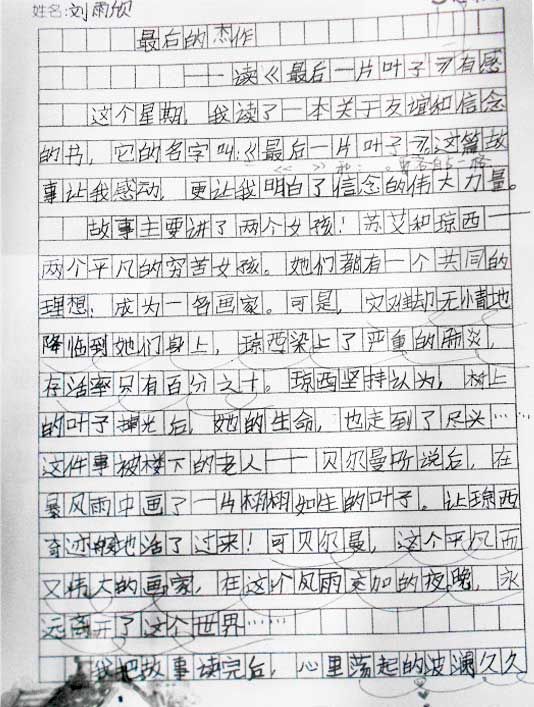 姓名:刘雨欣
最后的杰作
——读《最后一片叶子》有感
这个星期，我读了一本关于友谊和信念
的书，它的名字叫:《最后一片叶子》这篇故
《 》和:。
事让我感动，更让我明白了信念的伟大力量。
故事主要讲了两个女孩！苏艾和琼西——
两个平凡的穷苦女孩。她们都有一个共同的
理想，成为一名画家。可是，灾难却无情地
降临到她们身上，琼西染上了严重的肺炎，
存活率只有百分之十。琼西坚持认为，树上
的叶子掉光后，她的生命，也走到了尽头……
这件事被楼下的老人——贝尔曼听说后，在
暴风雨中画了一片栩栩如生的叶子。让琼西
奇迹般地活了过来！可贝尔曼，这个平凡而
又伟大的画家，在这个风雨交加的夜晚，永
远离开了这个世界……
我把故事读完后，心里荡起的波澜久久